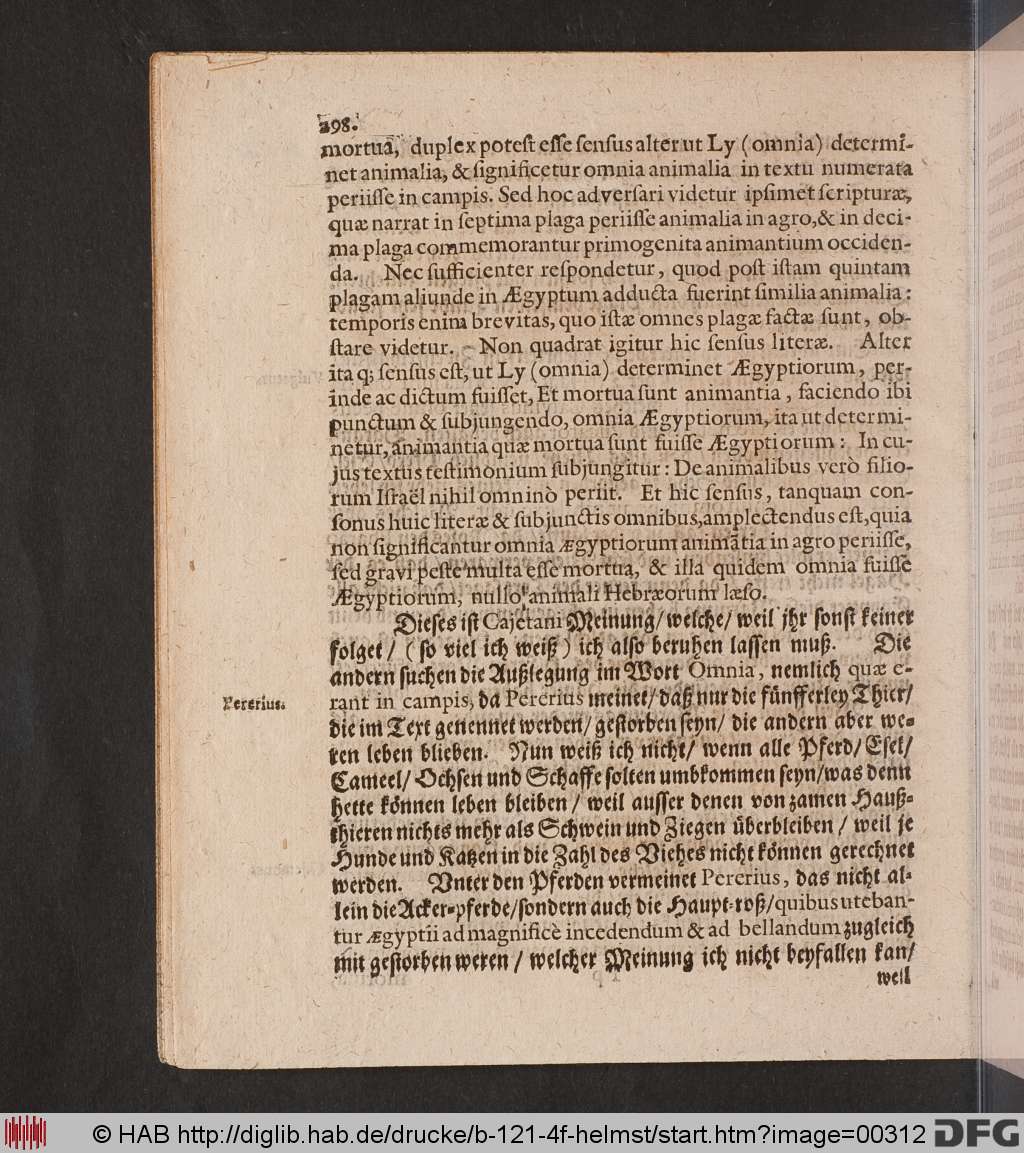 298.
mortuã, duplex potest esse sensus alter ut Ly (omnia) determi-
net animalia, & significetur omnia animalia in textu numerata
periisse in campis. Sed hoc adversari videtur ipsimet scripturæ,
quæ narrat in septima plaga periisse animalia in agro, & in deci-
ma plaga commemorantur primogenita animantium occiden-
da. Nec sufficienter respondetur, quod post istam quintam
plagam aliunde in Ægyptum adducta fuerint similia animalia:
temporis enim brevitas, quo istæ omnes plagæ factæ sunt, ob-
stare videtur. Non quadrat igitur hic sensus literæ. Alter
ita q; sensus est, ut Ly (omnia) determinet Ægyptiorum, per-
inde ac dictum fuisset, Et mortua sunt animantia, faciendo ibi
punctum & subjungendo, omnia Ægyptiorum, ita ut determi-
netur, animantia quæ mortua sunt fuisse Ægyptiorum: In cu-
jus textus testimonium subjungitur: De animalibus verò filio-
rum Israël nihil omninò periit. Et hic sensus, tanquam con-
sonus huic literæ & subjunctis omnibus, amplectendus est, quia
non significantur omnia ægyptiorum animãtia in agro periisse,
sed gravi peste multa esse mortua, & illa quidem omnia fuisse
Ægyptiorum, nullo animali Hebræorum læso.
Dieses ist Cajetani Meinung/ welche/ weil jhr sonst keiner
folget/ (so viel ich weiß) ich also beruhen lassen muß. Die
andern suchen die Außlegung im Wort Omnia, nemlich quæ e-
rant in campis, da Pererius meinet/ daß nur die fünfferley Thier/
Pererius.
die im Text genennet werden/ gestorben seyn/ die andern aber we-
ren leben blieben. Nun weiß ich nicht/ wenn alle Pferd/ Esel/
Cameel/ Ochsen und Schaffe solten umbkommen seyn/ was denn
hette können leben bleiben/ weil ausser denen von zamen Hauß-
thieren nichts mehr als Schwein und Ziegen überbleiben/ weil je
Hunde und Katzen in die Zahl des Viehes nicht können gerechnet
werden. Vnter den Pferden vermeinet Pererius, das nicht al-
lein die Acker-pferde/ sondern auch die Haupt-roß/ quibus uteban-
tur ægyptii ad magnificè incedendum & ad bellandum zugleich
mit gestorben weren/ welcher Meinung ich nicht beyfallen kan/
weil
© HAB http://diglib.hab.de/drucke/b-121-4f-helmst/start.htm?image=00312 DFG